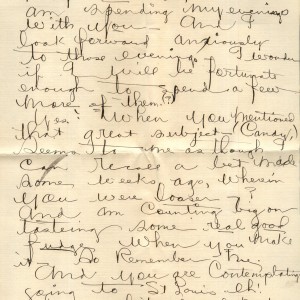 am spending my evenings
with you. And I
look forward anxiously
to those evenings. I wonder
if I will be fortunate
enough to spend a few
more of them?
Yes! When you mentioned
that great subject Candy,
seems to me as though I
can recall a bet made
some weeks ago, wherein
you were loser?
And am counting big on
tasting some real good
fudge. When you make
it do Remember Me.
And you are Contemplating
going to St Louis eh!